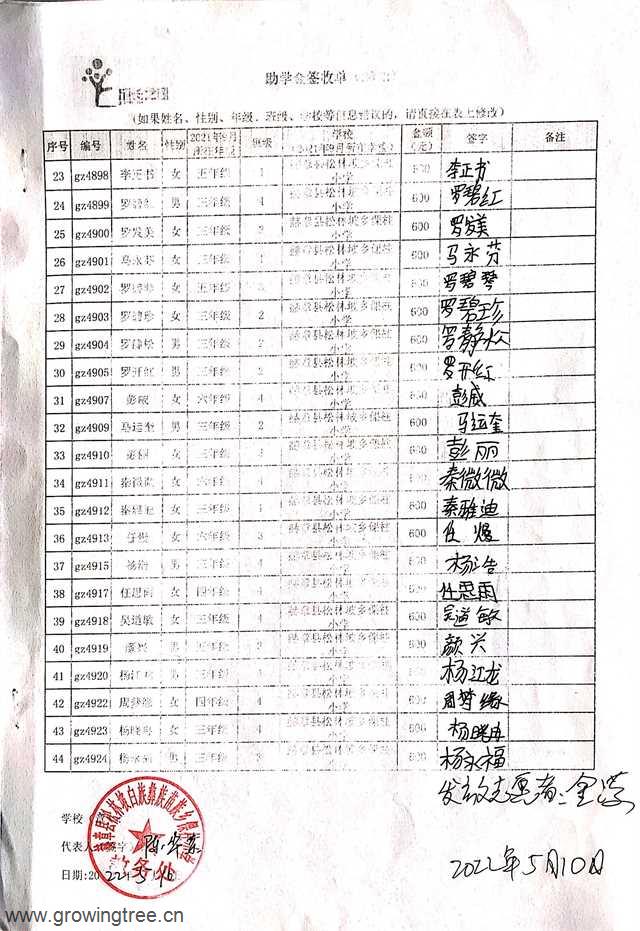 助学金签收单
(如果姓名、性别、年级、班级、学校等信息错误的,请直接在表上修改)
序号 编号 姓名 性别 2021年9月 班级 学校 金额(元) 签字 备注
23 gz4898 李正书 女 三年级 1 赫章县松林坡乡保社小学 600 李正书
24 gz4899 罗碧红 男 三年级 4 赫章县松林坡乡保社小学 600 罗碧红
25 gz4900 罗发美 女 三年级 赫章县松林坡乡保社小学 600 罗发美
26 gz4901 马永芬 女 三年级 赫章县松林坡乡保社小学 600 马永芬
27 gz4902 罗碧琴 女 年级 2 赫章县松林坡乡保社小学 600 罗碧琴
28 gz4903 罗碧珍 女 三年级 2 赫章县松林坡乡保社小学 600 罗碧珍
29 gz4904 罗静 男 三年级 2 赫章县松林坡乡保社小学 600 罗静
30 gz4905 罗开红 男 三年级 赫章县松林坡乡保社小学 600 罗开红
31 gz4907 彭威 女 六年级 4 赫章县松林坡乡保社小学 600 彭威
32 gz4909 马运奎 男 三年级 2 赫章县松林坡乡保社小学 600 马运奎
33 gz4910 彭丽 女 三年级 赫章县松林坡乡保社小学 600 彭丽
34 gz4911 秦微微 女 六年级 4 赫章县松林坡乡保社小学 600 秦微微
35 gz4912 秦雅迪 女 三年级 赫章县松林坡乡保社小学 600 秦雅迪
36 gz4913 任 女 六年级 赫章县松林坡乡保社小学 600 任
37 gz4915 杨浩 男 三年级 4 赫章县松林坡乡保社小学 600 杨浩
38 gz4917 任思雨 女 四年级 4 赫章县松林坡乡保社小学 600 任思雨
39 gz4918 吴道敏 女 三年级 4 赫章县松林坡乡保社小学 600 吴道敏
40 gz4919 颜兴 男 年级 赫章县松林坡乡保社小学 600 颜兴
41 gz4920 杨江龙 男 三年级 赫章县松林坡乡保社小学 600 杨江龙
42 gz4922 周梦缘 女 四年级 4 赫章县松林坡乡保社小学 600 周梦缘
43 gz4923 杨 女 三年级 4 赫章县松林坡乡保社小学 600 杨
44 gz4924 杨永福 男 三年级 赫章县松林坡乡保社小学 600 杨永福
发放志愿者:金
学校
赫章县松林坡白族彝族苗族乡保社小学
教务处
代表人(签字) 陈
日期:2022年5月10
2022年5月10日
www.growingtree.cn